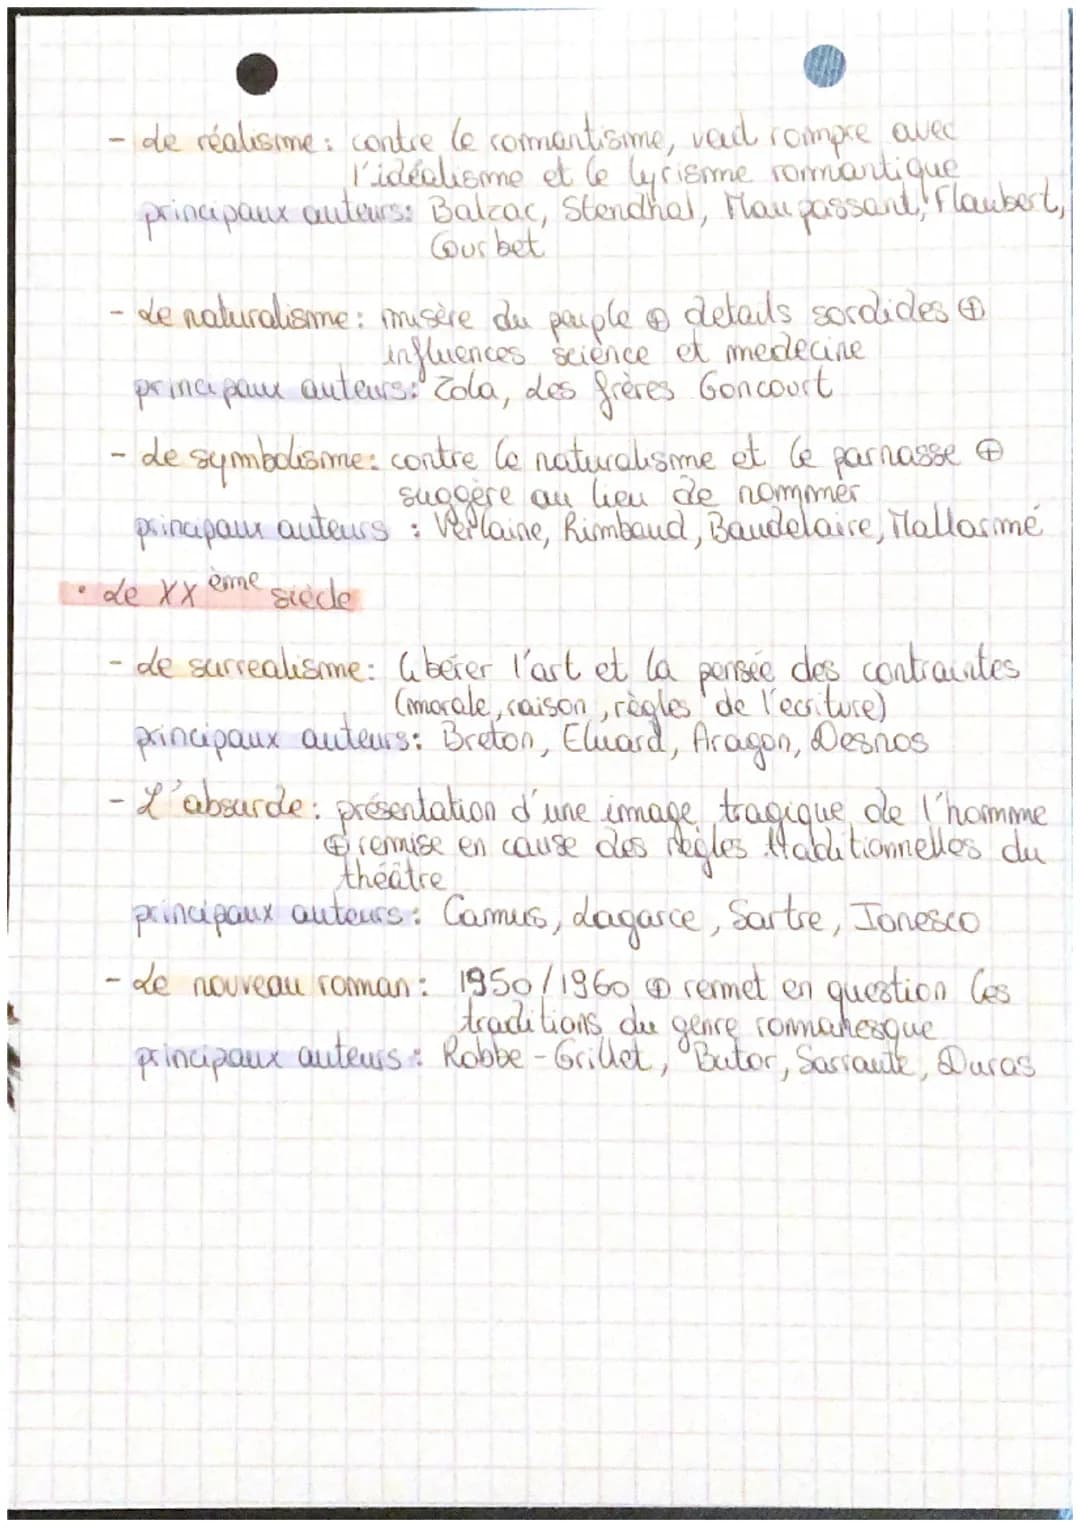 - Le réalisme : contre le romantisme, veut rompre avec
l'idéalisme et le lyrisme romantique
principaux auteurs : Balzac, Stendhal, Maupassant, Flaubert,
Courbet
- Le naturalisme : misère du peuple ⊕ details sordides ⊕
influences science et medecine
principaux auteurs : Zola, Les frères Goncourt
- Le symbolisme : contre le naturalisme et le parnasse ⊕
suggère au lieu de nommer
principaux auteurs : Verlaine, Rimbaud, Baudelaire, Mallarmé
• Le XXème siècle
- Le surrealisme : libérer l'art et la pensée des contraintes
(morale, raison, règles de l'ecriture)
principaux auteurs : Breton, Eluard, Aragon, Desnos
- L'absurde : présentation d'une image tragique de l'homme
⊕ remise en cause des règles traditionnelles du
théâtre
principaux auteurs : Camus, Lagarce, Sartre, Ionesco
- Le nouveau roman : 1950/1960 ⊕ remet en question les
traditions du genre romanesque
principaux auteurs : Robbe-Grillet, Butor, Sarraute, Duras